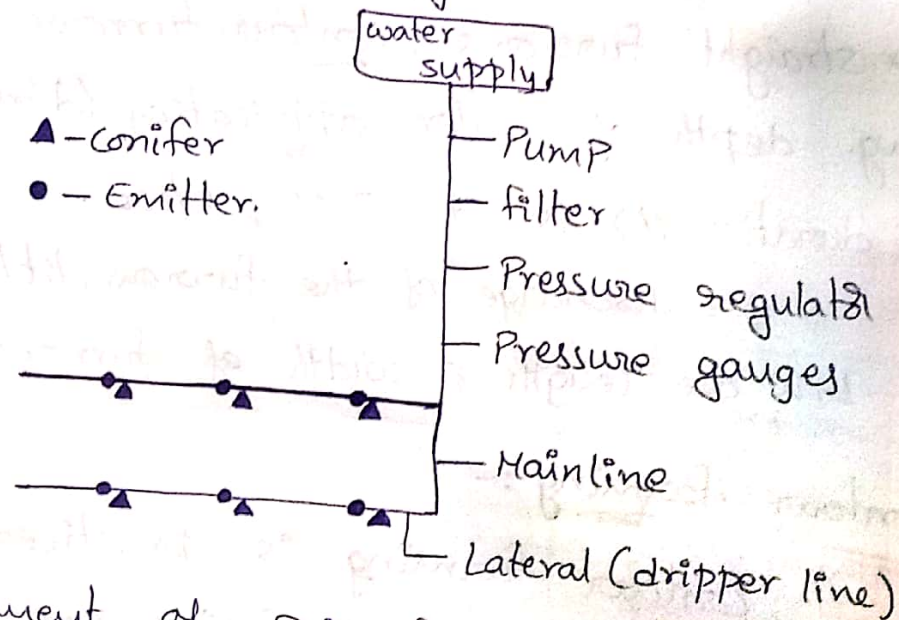 water
supply
▲ - conifer
● - Emitter.
Pump
filter
Pressure regulator
Pressure gauges
Mainline
Lateral (dripper line)